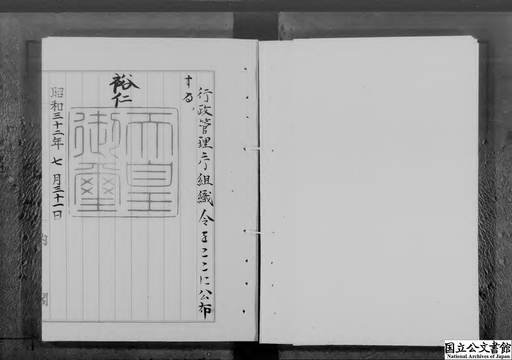 行政管理庁組織令をここに公布
する。
裕仁
天皇
御璽
昭和三十二年七月三十一日
内閣
国立公文書館
National Archives of Japan